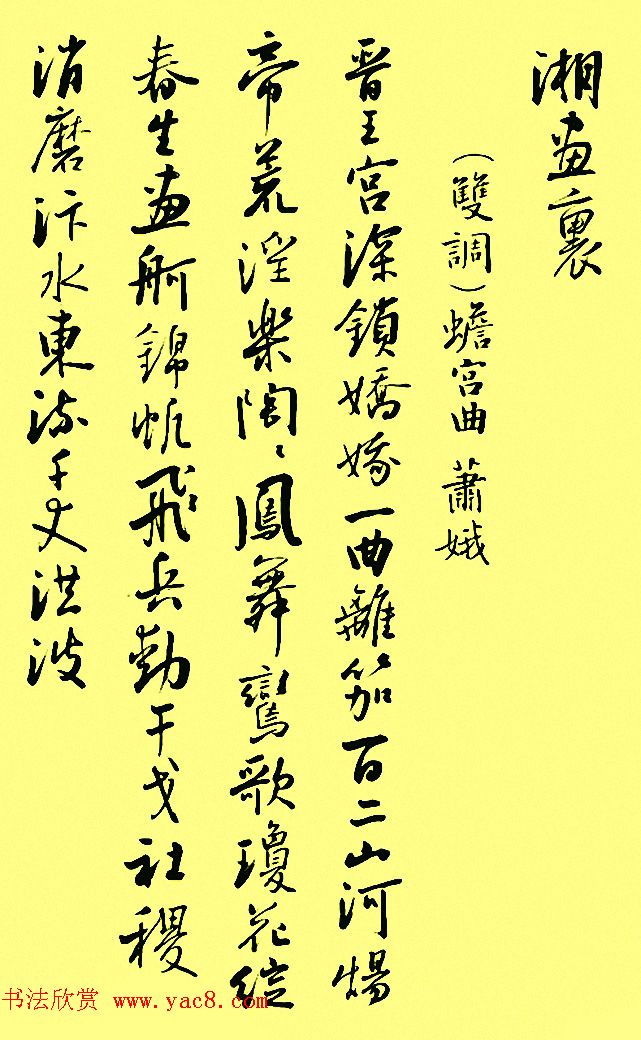 湘畫裏
（雙調）蟾宮曲 蕭娥
晋王宮深鎖嬌娥一曲離笳百二山河煬
帝荒淫樂陶〻鳳舞鸞歌瓊花綻
春生畫舸錦帆飛兵動干戈社稷
消磨汴水東流千丈洪波
书法欣赏 www.yac8.com